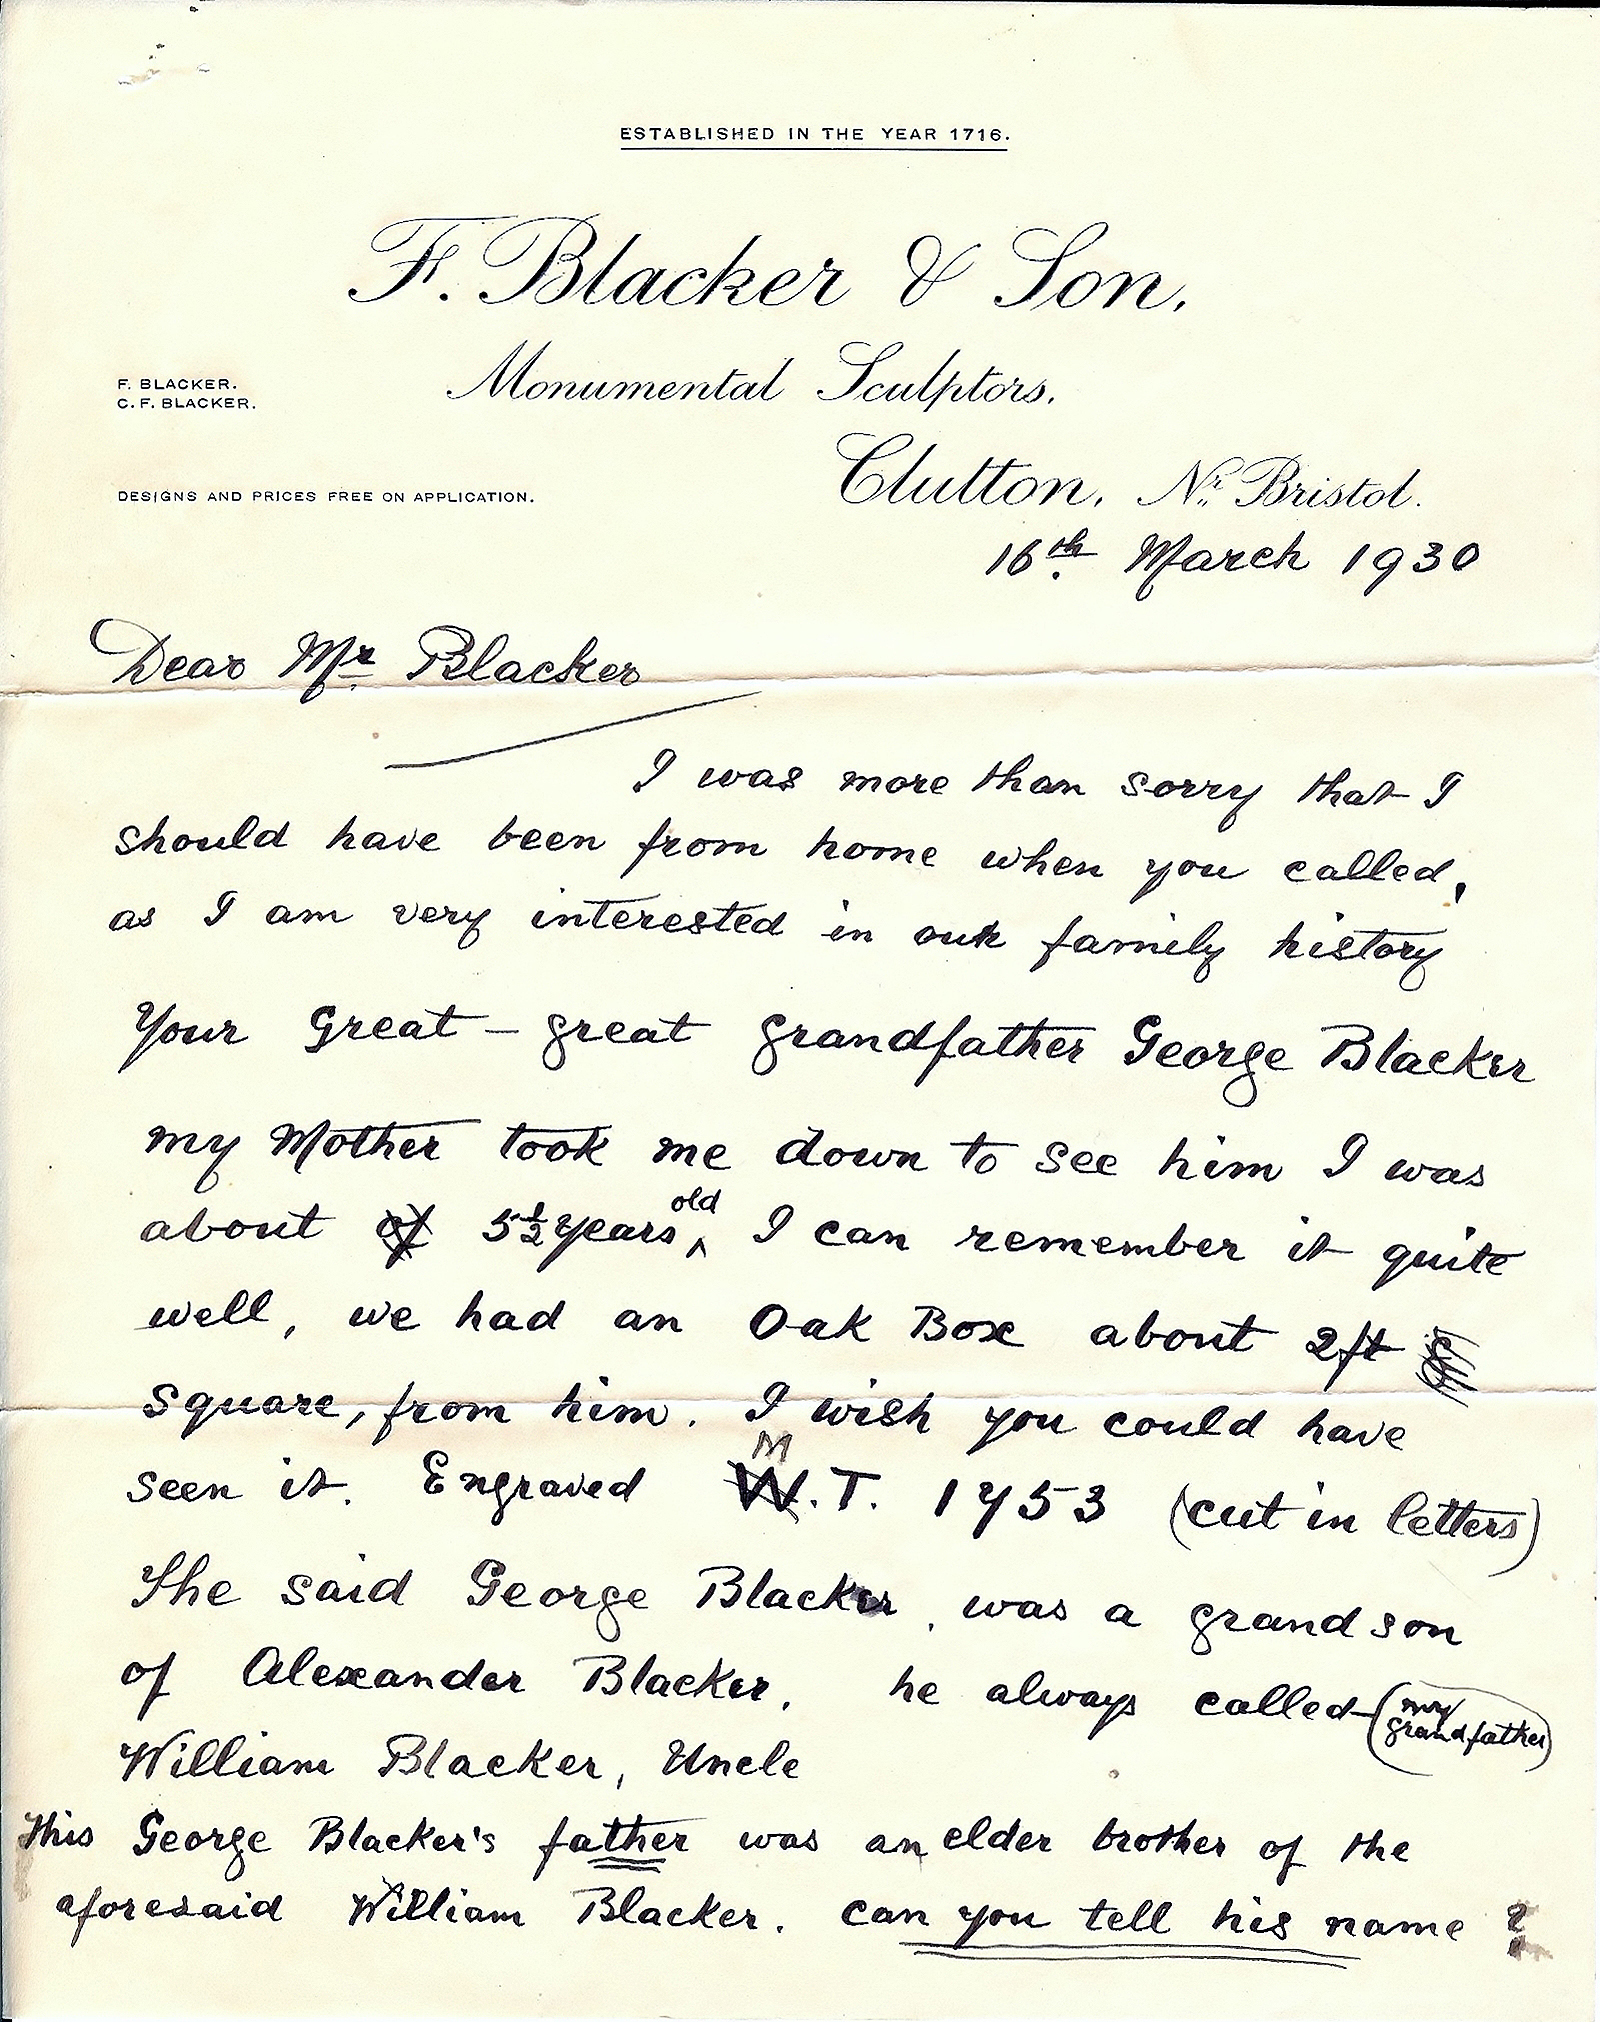 ESTABLISHED IN THE YEAR 1716.
F. Blacker & Son,
Monumental Sculptors.
F. BLACKER.
C. F. BLACKER.
Clutton, Nr. Bristol.
DESIGNS AND PRICES FREE ON APPLICATION.
16th March 1930
Dear Mr Blacker
I was more than sorry that I
should have been from home when you called,
as I am very interested in our family history
Your Great-great grandfather George Blacker
my Mother took me down to see him I was
about of 5½ years old I can remember it quite
well, we had an Oak Box about 2ft
square, from him. I wish you could have
M
seen it. Engraved W.T. 1753 (cut in letters)
She said George Blacker, was a grandson
of Alexander Blacker, he always called (my grandfather)
William Blacker, Uncle
This George Blacker's father was an elder brother of the
aforesaid William Blacker. can you tell his name ?